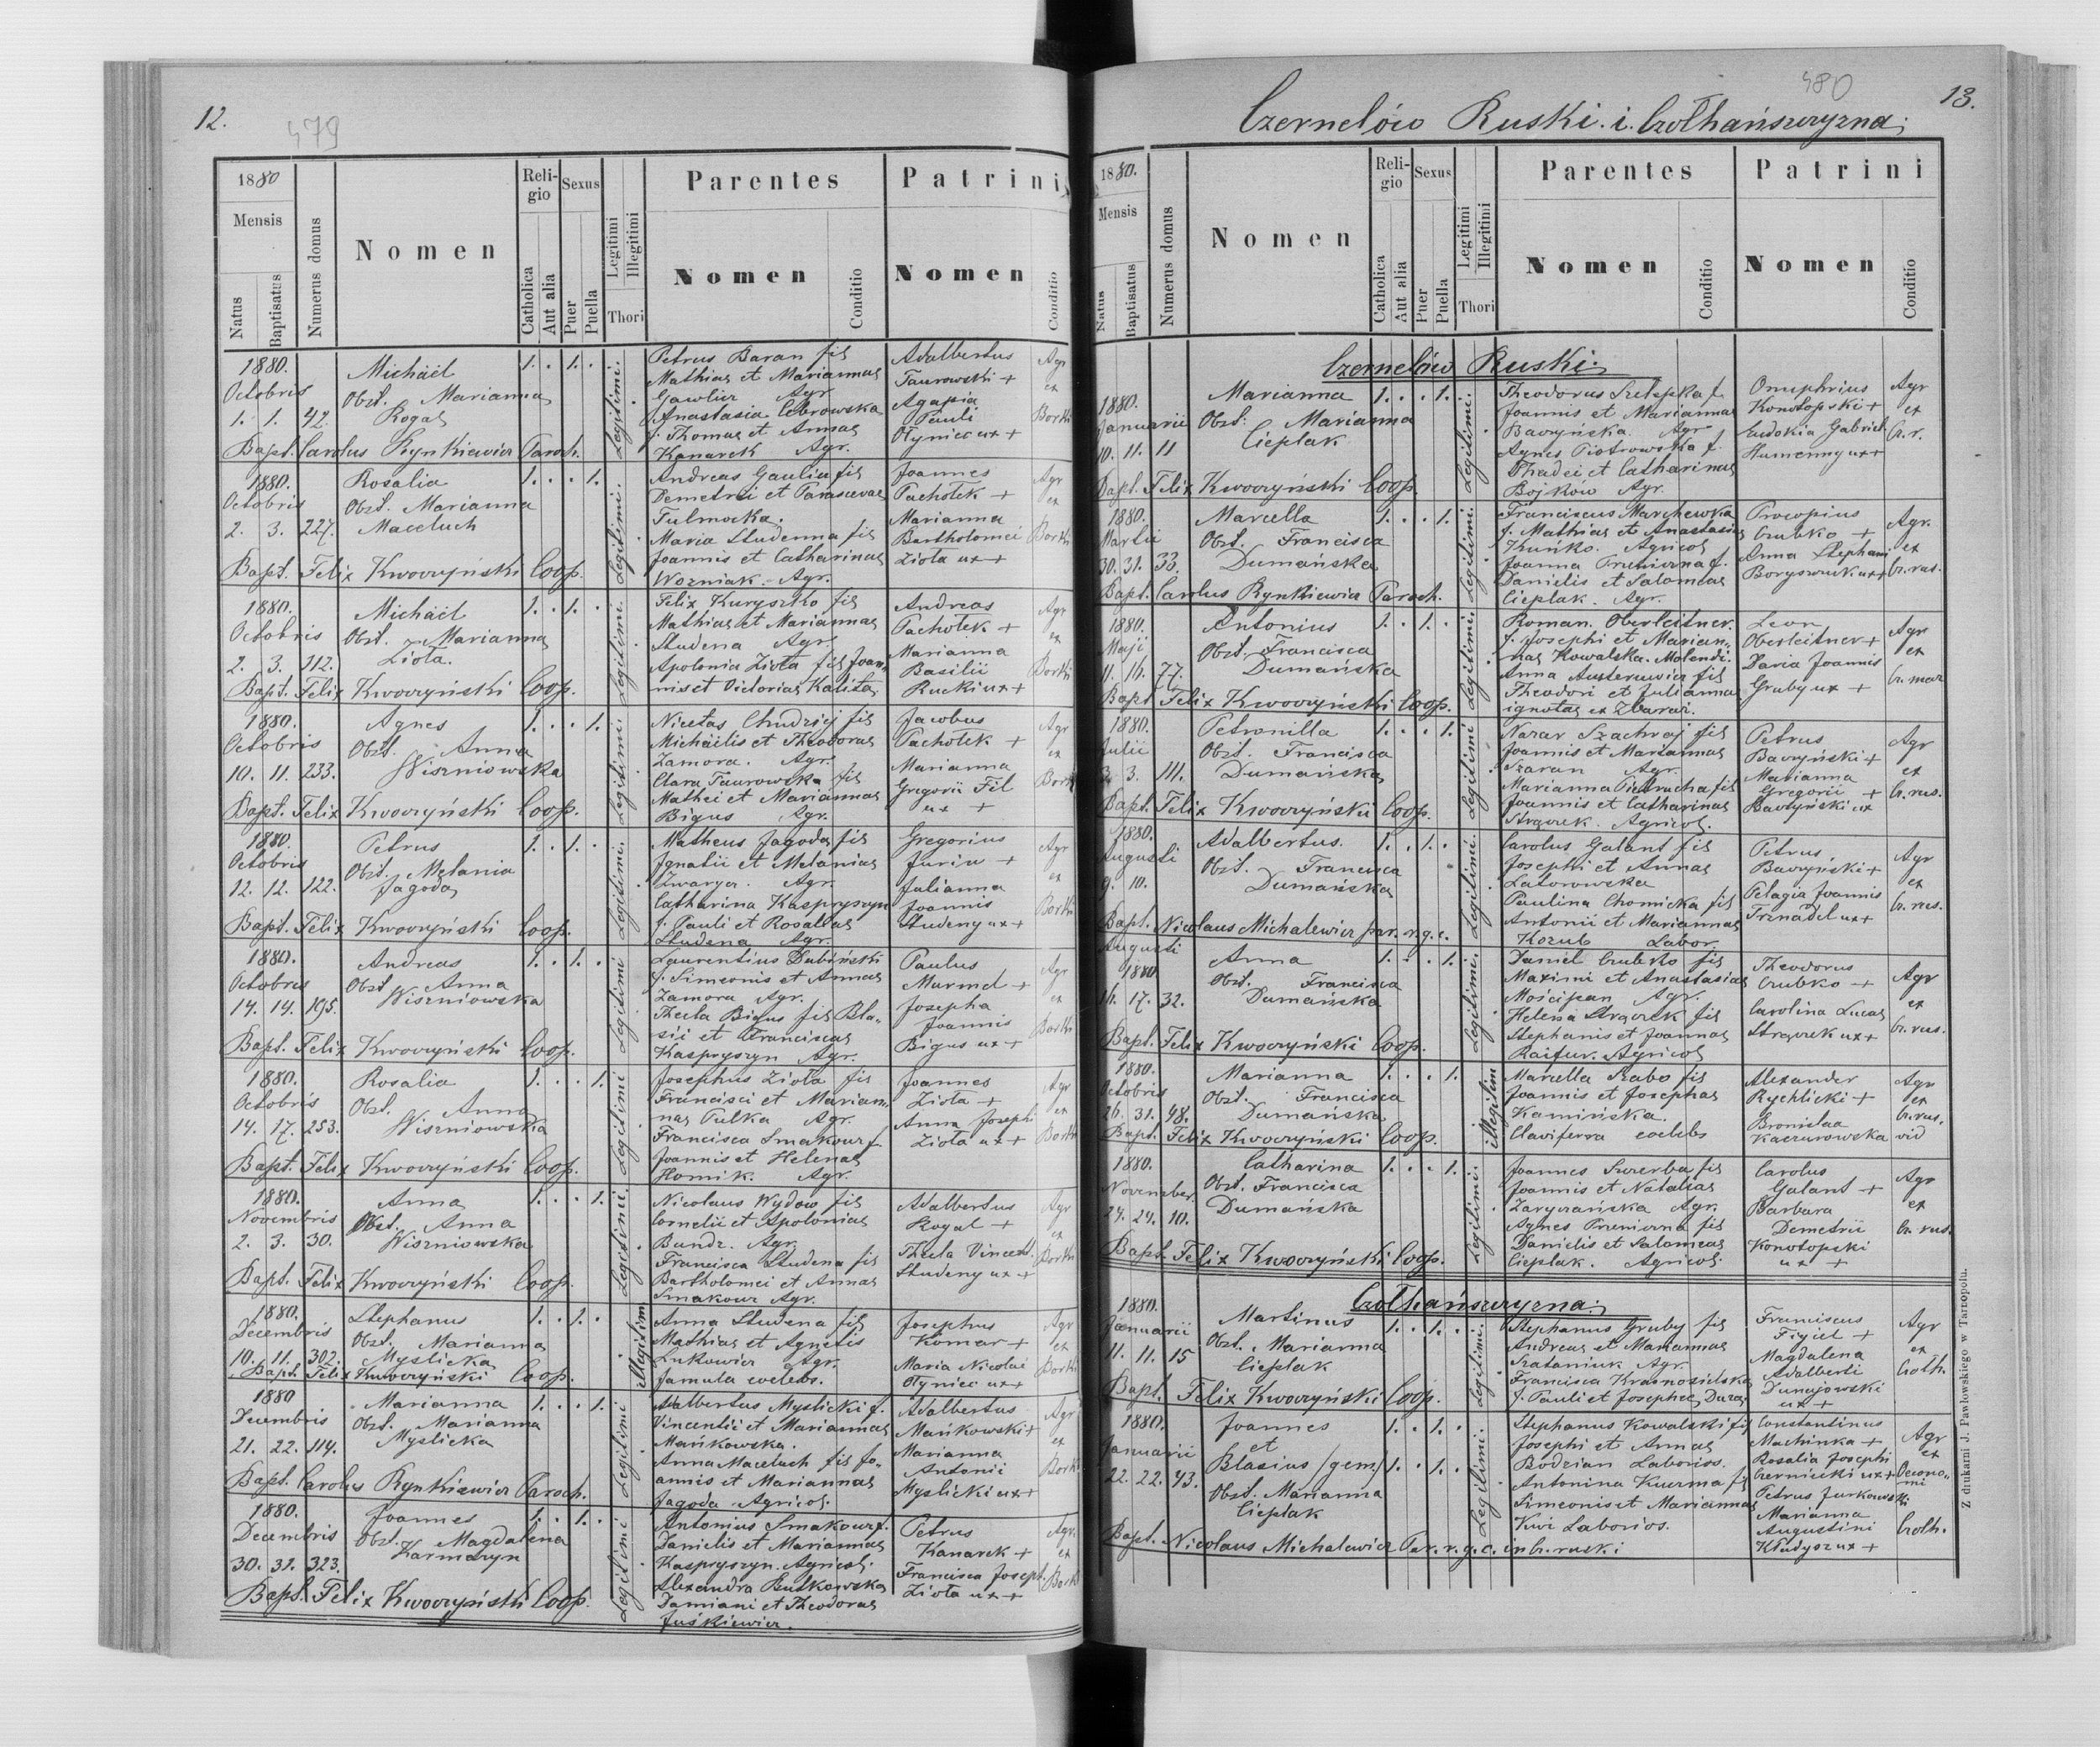 12.
479
1880
Mensis
Natus
Baptisatus
Numerus domus
Nomen
Religio
Catholica
Aut alia
Sexus
Puer
Puella
Legitimi
Illegitimi
Thori
Parentes
Nomen
Conditio
Patrini
Nomen
Conditio
1880.
Octobris
1. 1. 42.
Michaël
Obst. Marianna
Rogal
1. . 1. .
Legitimi.
Petrus Baran fil
Mathias et Mariannae
Gawlicz Agr
Anastasia Cebrowska
f. Thomas et Annae
Kanarek Agr.
Adalbertus
Taurowski +
Agapia
Pauli
Olyniec ux +
Agr
et
Borki
Bapt. Carolus Rynkiewicz Paroch.
1880.
Octobris
2. 3. 227.
Rosalia
Obst. Marianna
Maceluch
1. . . 1.
Legitimi.
Andreas Gaulin fil
Demetrii et Parascevae
Tulmocka.
Maria Studenna fil
Joannis et Catharinae
Wozniak. Agr.
Joannes
Pachołek +
Marianna
Bartholomei
Zioła ux +
Agr
et
Borki
Bapt. Felix Kwoczyński Coop.
1880.
Octobris
2. 3. 112.
Michaël
Obst. Marianna
Zioła.
1. . 1. .
Legitimi.
Felix Kuryszko fil
Mathias et Mariannae
Studena Agr
Apolonia Zioła fil Joannis et Victorias Kalita
Andreas
Pachołek +
Marianna
Basilii
Rucki ux +
Agr
et
Borki
Bapt. Felix Kwoczyński Coop.
1880.
Octobris
10. 11. 233.
Agnes
Obst. Anna
Wiszniowska
1. . . 1.
Legitimi.
Nicetas Chudzij fil
Michaëlis et Theodorae
Zamora. Agr.
Clara Taurowska fil
Mathei et Mariannae
Bigus Agr.
Jacobus
Pachołek +
Marianna
Gregorii Fil
ux +
Agr
et
Borki
Bapt. Felix Kwoczyński Coop.
1880.
Octobris
12. 12. 122.
Petrus
Obst. Melania
Jagoda
1. . 1. .
Legitimi.
Matheus Jagoda fil
Ignatii et Melaniae
Zwarycz. Agr.
Catharina Kaspryszyn
f. Pauli et Rosaliae
Studena Agr.
Gregorius
Juriw +
Julianna
Joannis
Studeny ux +
Agr
et
Borki
Bapt. Felix Kwoczyński Coop.
1880.
Octobris
14. 14. 195.
Andreas
Obst. Anna
Wiszniowska
1. . 1. .
Legitimi
Laurentius Dubiński
f. Simeonis et Annae
Zamora Agr.
Thecla Bigus fil Blasii et Franciscae
Kaspryszyn Agr.
Paulus
Murmel +
Josepha
Joannis
Bigus ux +
Agr
et
Borki
Bapt. Felix Kwoczyński Coop.
1880.
Octobris
14. 17. 253.
Rosalia
Obst. Anna
Wiszniowska
1. . . 1.
Legitimi
Josephus Zioła fil
Francisci et Mariannae Pulka Agr.
Francisca Smakouz f
Joannis et Helenae
Homik. Agr.
Joannes
Zioła +
Anna Josephi
Zioła ux +
Agr
et
Borki
Bapt. Felix Kwoczyński Coop.
1880.
Novembris
2. 3. 30.
Anna
Obst. Anna
Wiszniowska
1. . . 1.
Legitimi.
Nicolaus Wydow fil
Cornelii et Apoloniae
Bundz. Agr.
Francisca Studena fil
Bartholomei et Annae
Smakouz Agr.
Adalbertus
Rogal +
Thecla Vincenti
Studeny ux +
Agr
et
Borki
Bapt. Felix Kwoczyński Coop.
1880.
Decembris
10. 11. 302.
Stephanus
Obst. Marianna
Myslicka
1. . 1. .
illegitim
Anna Studena fil
Mathias et Agnetis
Lukowicz Agr.
famula coelebs.
Josephus
Komar +
Maria Nicolai
Olyniec ux +
Agr
et
Borki
Bapt. Felix Kwoczyński Coop.
1880
Decembris
21. 22. 114.
Marianna
Obst. Marianna
Myslicka
1. . . 1.
Legitimi
Adalbertus Myslicki f.
Vincentii et Mariannae
Mańkowska.
Anna Maceluch fil Joannis et Mariannae
Jagoda Agricol.
Adalbertus
Mańkowski +
Marianna
Antonii
Myslicki ux +
Agr
et
Borki
Bapt. Carolus Rynkiewicz Paroch.
1880.
Decembris
30. 31. 323.
Joannes
Obst. Magdalena
Karmazyn
1. . 1. .
Legitimi
Antonius Smakouz f.
Danielis et Mariannae
Kaspryszyn. Agricol.
Alexandra Rutkowska
Damiani et Theodorae
Juśkiewicz.
Petrus
Kanarek +
Francisca Joseph.
Zioła ux +
Agr.
et
Borki
Bapt. Felix Kwoczyński Coop.
480
13.
Czernelów Ruski. i. Czołhańszczyzna;
1880.
Mensis
Natus
Baptisatus
Numerus domus
Nomen
Religio
Catholica
Aut alia
Sexus
Puer
Puella
Legitimi
Illegitimi
Thori
Parentes
Nomen
Conditio
Patrini
Nomen
Conditio
Czernelów Ruski;
1880.
Januarii
10. 11. 11
Marianna
Obst. Marianna
Cieplak
1. . . 1.
Legitimi.
Theodorus Szelepka f.
Joannis et Mariannae
Baczyńska. Agr
Agnes Piotrowska f.
Thadei et Catharinae
Bojków Agr.
Onuphrius
Konotopski +
Eudokia Gabriel.
Humenny ux +
Agr
et
Cz. r.
Bapt. Felix Kwoczyński Coop.
1880.
Martii
30. 31. 33.
Marcella
Obst. Francisca
Dumańska
1. . . 1.
Legitimi.
Franciscus Marchewka
f. Mathias et Anastasiae
Kuńko. Agricol
Joanna Przeniczna f.
Danielis et Salomeae
Cieplak. Agr.
Procopius
Czubko +
Anna Stephani
Boryszczuk ux +
Agr.
et
Cz. rus.
Bapt. Carolus Rynkiewicz Paroch.
1880.
Maji
11. 16. 77.
Antonius
Obst. Francisca
Dumańska
1. . 1. .
Legitimi.
Roman. Oberleitner.
f. Josephi et Mariannae Kowalska. Molendi.
Theodori et Julianna
ignotae ex Zbaraz.
Leon
Oberleitner +
Daria Joannis
Gruby ux +
Agr
et
Bapt. Felix Kwoczyński Coop.
1880.
Julii
3. 111.
Petronilla
Obst. Francisca
Dumańska
1. . . 1.
Legitimi
Nazar Szachraj fil
Joannis et Mariannae
Szaran Agr.
Marianna Pietrucha fil
Joannis et Catharinae
Strączek. Agricol.
Petrus
Baczyński +
Marianna
Gregorii +
Baczyński ux
Agr
et
Cz. rus.
Bapt. Felix Kwoczyński Coop.
1880.
Augusti
9. 10.
Adalbertus.
Obst. Francisca
Dumańska
1. . 1. .
Legitimi.
Carolus Galant fil
Josephi et Annae
Latorowska
Paulina Chomicka fil
Antonii et Mariannae
Kozub Labor.
Petrus
Baczyński +
Pelagia Joannis
Trznadel ux +
Agr
et
Cz. rus.
Bapt. Nicolaus Michalewicz par. r. g. c.
Augusti
1880
16. 17. 32.
Anna
Obst. Francisca
Dumańska
1. . . 1.
Legitimi.
Daniel Czubko fil
Maximi et Anastasiae
Mościpan Agr.
Helena Strączek fil
Stephanis et Joannae
Raifur. Agricol
Theodorus
Czubko +
Carolina Lucas
Strączek ux +
Agr
et
Cz. rus.
Bapt. Felix Kwoczyński Coop.
1880.
Octobris
26. 31. 48.
Marianna
Obst. Francisca
Dumańska
1. . . 1.
illegitim
Marcella Szabo fil
Joannis et Josephae
Kamińska.
Clavifera coelebs
Alexander
Rychlicki +
Bronislaa
Kaczurowska vid
Agr
et
Cz. rus.
Bapt. Felix Kwoczyński Coop.
1880.
November.
24. 24. 10.
Catharina
Obst. Francisca
Dumańska
1. . . 1.
Legitimi.
Joannes Szczerba fil
Joannis et Nataliae
Zaryczańska Agr.
Agnes Przeniczna fil
Danielis et Salomeae
Cieplak. Agricol
Carolus
Galant +
Barbara
Demetrii
Konotopski
ux +
Agr
et
Cz. rus.
Bapt. Felix Kwoczyński Coop.
Czołhańszczyzna;
1880.
Januarii
11. 11. 15
Martinus
Obst. Marianna
Cieplak
1. . 1. .
Legitimi.
Stephanus Gruby fil
Andreas et Mariannae
Szataniuk Agr.
Francisca Krasnosielska
f. Pauli et Josephae Duza
Franciscus
Figiel +
Magdalena
Adalberti
Dunajowski
ux +
Agr
et
Czołh.
Bapt. Felix Kwoczyński Coop.
1880.
Januarii
22. 22. 43.
Joannes
et
Blasius /gem/
Obst. Marianna
Cieplak
1. . 1. .
1. . 1. .
Legitimi.
Stephanus Kowalski fil
Josephi et Annae
Bodzian Laborios.
Antonina Kuczma fil
Simeonis et Mariannae
Kwi Laborios.
Constantinus
Machinka +
Rosalia Josephi
Czernicki ux +
Petrus Jurkowski
Marianna
Augustini
Kładysz ux +
Agr
et
Oeconomi
Czołh.
Bapt. Nicolaus Michalewicz Par. r. g. c. in Cz. ruski
Z drukarni J. Pawłowskiego w Tarnopolu.